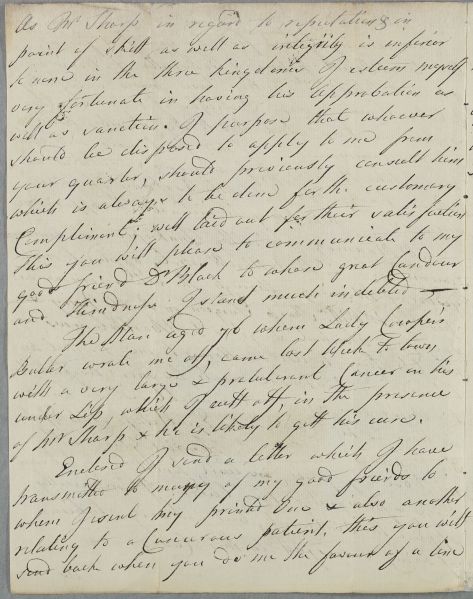 As Mr Sharp in regard to reputation & in
point of skill as well as integrity is inferior
to none in the three kingdoms I esteem myself
very fortunate in having his approbation as
well as sanction. I purpose that whoever
should be disposed to apply to me from
your quarter, should previously consult him
which is always to be done for the customary
Compliment; well laid out for their satisfaction
this you will please to communicate to my
good friend Dr Black to whose great Candour
and Kindness I stand much indebted —
The Man aged 76 whom Lady Cowper's
Butler wrote me of, came last week to town
with a very large & protuberant Cancer in his
under Lip, which I cutt off, in the presence
of Mr Sharp & he is likely to gett his cure.
Enclosed I send a letter which I have
transmitted to many of my good friends to
whom I send my printed One & also another
relating to a Cancerous patient, this you will
send back when you do me the favour of a line